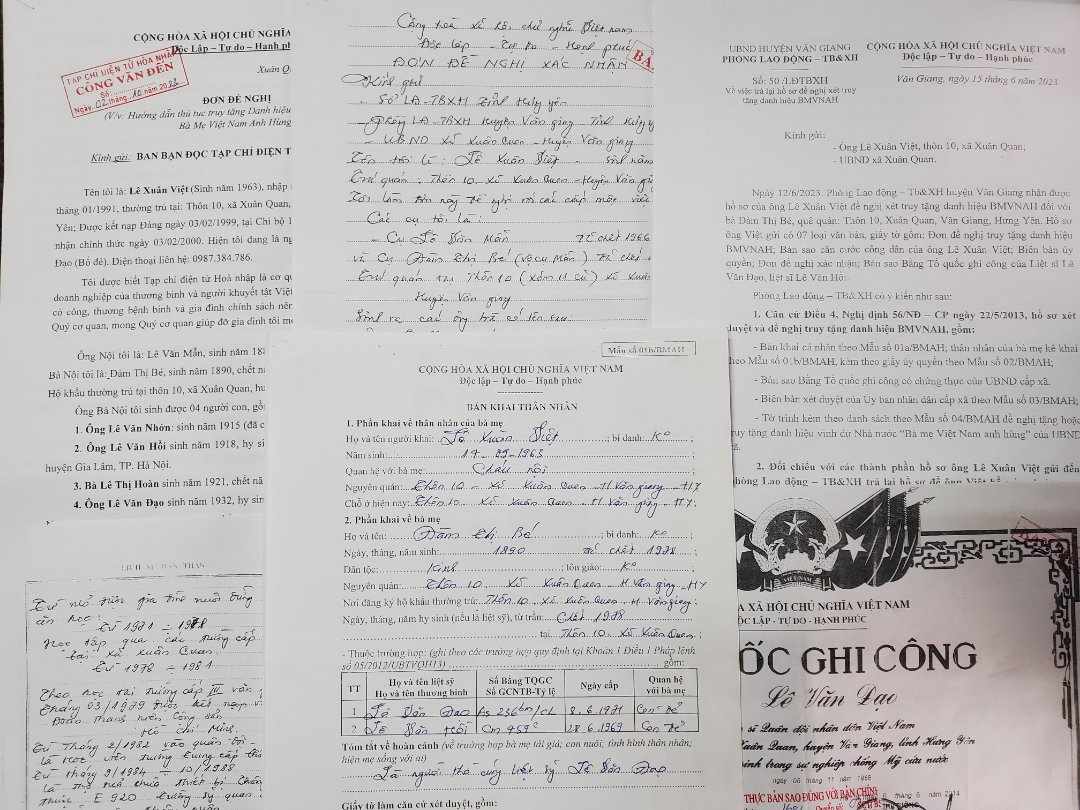 CỘNG HÒA XÃ HỘI CHỦ NGHĨA
Độc Lập – Tự do – Hạnh
TẠP CHÍ ĐIỆN TỬ HÒA NHẬP
CÔNG VĂN ĐẾN
Số:
Ngày 02 tháng 10 năm 2023
Xuân
ĐƠN ĐỀ NGHỊ
(V/v: Hướng dẫn thủ tục truy tặng Danh hiệu
Bà Mẹ Việt Nam Anh Hùng
Kính gửi: BAN BẠN ĐỌC TẠP CHÍ ĐIỆN
Tên tôi là: Lê Xuân Việt (Sinh năm 1963), nhập
tháng 01/1991, thường trú tại: Thôn 10, xã Xuân Quan,
Yên; Được kết nạp Đảng ngày 03/02/1999, tại Chi bộ
nhận chính thức ngày 03/02/2000. Hiện tôi đang là
Đạo (Bố đẻ). Điện thoại liên hệ: 0987.384.786.
Tôi được biết Tạp chí điện tử Hoà nhập là cơ
doanh nghiệp của thương binh và người khuyết tật Việt
có công, thương bệnh binh và gia đình chính sách
Quý cơ quan, mong Quý cơ quan giúp đỡ gia đình tôi
Ông Nội tôi là: Lê Văn Mẫn, sinh năm
Bà Nội tôi là: Đàm Thị Bé, sinh năm 1890, chết
Hộ khẩu thường trú tại thôn 10, xã Xuân Quan,
Ông Bà Nội tôi sinh được 04 người con,
1. Ông Lê Văn Nhởn: sinh năm 1915 (đã
2. Ông Lê Văn Hồi sinh năm 1918, hy
huyện Gia Lâm, TP. Hà Nội.
3. Bà Lê Thị Hoàn sinh năm 1921, chết
4. Ông Lê Văn Đạo sinh năm 1932, hy
Từ nhỏ
Từ 1971 ÷ 1978
Học tập
xã Xuân Quan
Từ 1978 ÷ 1981
Theo học tại trường cấp III
Đoàn Thanh niên Cộng sản
Hồ Chí Minh.
Từ Tháng 2/1982 vào quân đội
Từ tháng 9/1984 ÷ 10/1988
E 920
Cộng hoà xã hội chủ nghĩa Việt nam
Độc lập - Tự do - Hạnh phúc
ĐƠN ĐỀ NGHỊ XÁC NHẬN
Kính gửi
- Sở LĐ-TBXH tỉnh Hưng yên
- Phòng LĐ-TBXH Huyện Văn giang Tỉnh Hưng
- UBND Xã Xuân Quan - Huyện Văn giang
Tên tôi là: Lê Xuân Việt - Sinh năm
Trú quán: Thôn 10. Xã Xuân Quan - Huyện Văn
Tôi làm đơn này đề nghị
Các cụ tôi là:
- Cụ Lê Văn Mẫn đã chết 1966
và Cụ Đàm Thị Bé (vợ cụ Mẫn) đã chết
Trú quán tại Thôn 10 (xóm 11 cũ) Xã Xuân
Huyện Văn giang
Sinh ra các ông bà có tên sau
UBND HUYỆN VĂN GIANG
PHÒNG LAO ĐỘNG – TB&XH
CỘNG HÒA XÃ HỘI CHỦ NGHĨA VIỆT NAM
Độc lập – Tự do – Hạnh phúc
Số: 50 /LĐTBXH
Về việc trả lại hồ sơ đề nghị xét truy
tặng danh hiệu BMVNAH
Văn Giang, ngày 15 tháng 6 năm 2023
Kính gửi:
- Ông Lê Xuân Việt, thôn 10, xã Xuân Quan;
- UBND xã Xuân Quan.
Ngày 12/6/2023, Phòng Lao động – Tb&XH huyện Văn Giang nhận được
hồ sơ của ông Lê Xuân Việt đề nghị xét truy tặng danh hiệu BMVNAH đối với
bà Đàm Thị Bé, quê quán: Thôn 10, Xuân Quan, Văn Giang, Hưng Yên. Hồ sơ
ông Việt gửi có 07 loại văn bản, giấy tờ gồm: Đơn đề nghị truy tặng danh hiệu
BMVNAH; Bản sao căn cước công dân của ông Lê Xuân Việt; Biên bản ủy
quyền; Đơn đề nghị xác nhận; Bản sao Bằng Tổ quốc ghi công của Liệt sĩ Lê
Văn Đạo, liệt sĩ Lê Văn Hồi.
Phòng Lao động – TB&XH có ý kiến như sau:
1. Căn cứ Điều 4, Nghị định 56/NĐ – CP ngày 22/5/2013, hồ sơ xét
duyệt và đề nghị truy tặng danh hiệu BMVNAH, gồm:
- Bản khai cá nhân theo Mẫu số 01a/BMAH; thân nhân của bà mẹ kê khai
theo Mẫu số 01b/BMAH, kèm theo giấy ủy quyền theo Mẫu số 02/BMAH;
- Bản sao Bằng Tổ quốc ghi công có chứng thực của UBND cấp xã.
- Biên bản xét duyệt của Ủy ban nhân dân cấp xã theo Mẫu số 03/BMAH;
- Tờ trình kèm theo danh sách theo Mẫu số 04/BMAH đề nghị tặng hoặc
truy tặng danh hiệu vinh dự Nhà nước “Bà mẹ Việt Nam anh hùng” của UBND
2. Đối chiếu với các thành phần hồ sơ ông Lê Xuân Việt gửi đến
Phòng Lao động – TB&XH trả lại hồ sơ để ông Việt
Mẫu số 01b/BMAH
CỘNG HÒA XÃ HỘI CHỦ NGHĨA VIỆT NAM
Độc lập – Tự do – Hạnh phúc
BẢN KHAI THÂN NHÂN
1. Phần khai về thân nhân của bà mẹ
Họ và tên người khai: Lê Xuân Việt ; bí danh: Ko ;
Năm sinh: 14-09-1963 ;
Quan hệ với bà mẹ: Cháu nội ;
Nguyên quán: Thôn 10 - Xã Xuân Quan - H Văn giang - HY
Chỗ ở hiện nay: Thôn 10. Xã Xuân Quan - H. Văn giang - HY.
2. Phần khai về bà mẹ
Họ và tên: Đàm Thị Bé ; bí danh: Ko
Ngày, tháng, năm sinh: 1890 đã chết 1978
Dân tộc: Kinh ; tôn giáo: Ko
Nguyên quán: Thôn 10 Xã Xuân Quan - H. Văn giang - HY
Nơi đăng ký hộ khẩu thường trú: Thôn 10. Xã Xuân Quan. H Văn giang;
Ngày, tháng, năm hy sinh (nếu là liệt sỹ), từ trần: Chết 1978
tại Thôn 10. Xã Xuân Quan ;
- Thuộc trường hợp: (ghi theo các trường hợp quy định tại Khoản 1 Điều 1 Pháp lệnh
số 05/2012/UBTVQH13) gồm:
TT Họ và tên liệt sỹ Họ và tên thương binh Số Bằng TQGC Số GCNTB-Tỷ lệ Ngày cấp Quan hệ với bà mẹ
1 Lê Văn Đạo 8.6.1971 Con đẻ
2 Lê Văn Hồi 28.6.1969 Con đẻ
Tóm tắt về hoàn cảnh (về trường hợp bà mẹ tái giá; con nuôi; tình hình thân nhân;
hiện mẹ sống với ai)
Là người thờ cúng liệt sỹ Lê Văn Đạo
Giấy tờ làm căn cứ xét duyệt, gồm:
VIỆT NAM
XÃ HỘI CHỦ NGHĨA VIỆT NAM
ĐỘC LẬP - TỰ DO - HẠNH PHÚC
ỐC GHI CÔNG
Lê Văn Đạo
sĩ Quân đội nhân dân Việt Nam
Xuân Quan, huyện Văn Giang, tỉnh Hưng Yên
sinh trong sự nghiệp chống Mỹ cứu nước
ngày 06 tháng 11 năm 1968
THỰC BẢN SAO ĐÚNG VỚI BẢN CHÍNH